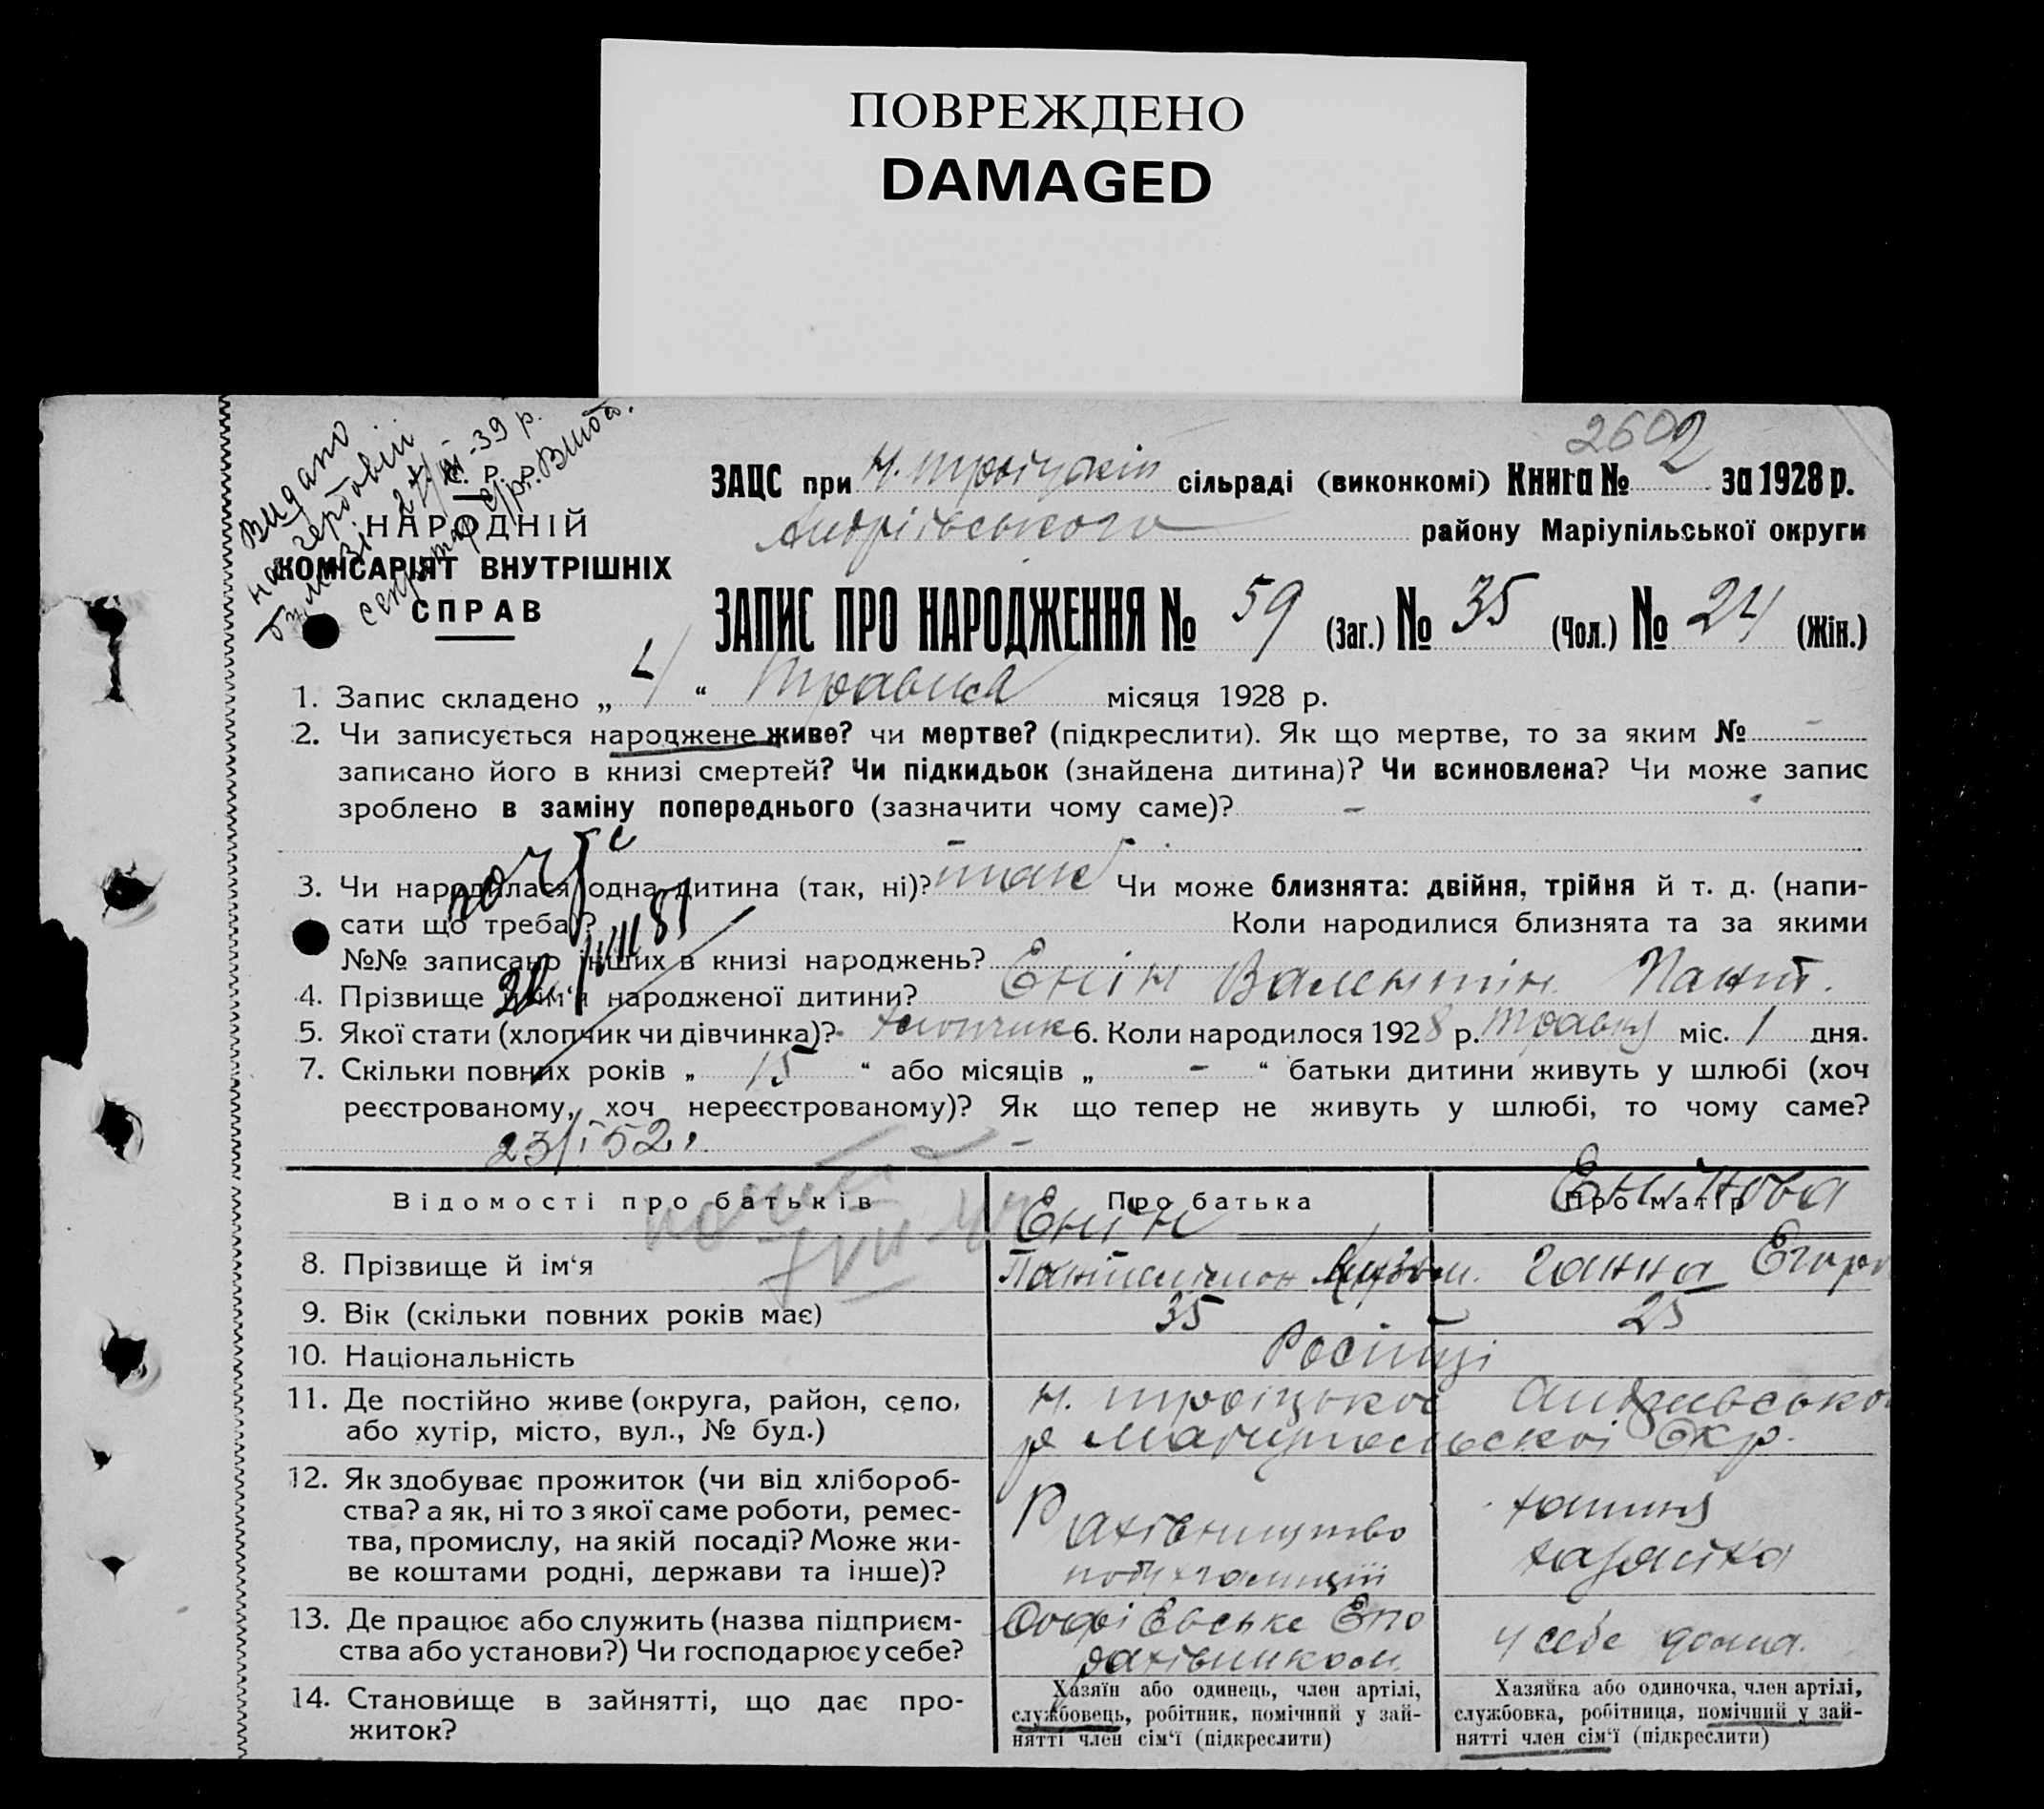 ПОВРЕЖДЕНО
DAMAGED
2602
Видано
на гербовій
27/ -39 р.
С. Р. Р.
НАРОДНІЙ
КОМІСАРІЯТ ВНУТРІШНІХ
СПРАВ
ЗАЦС при Н. Троіцькій сільраді (виконкомі) Книга № 2 за 1928 р.
Андріївського району Маріупільської округи
ЗАПИС ПРО НАРОДЖЕННЯ № 59 (Заг.) № 35 (Чол.) № 24 (Жін.)
1. Запис складено „ 4 “ Травня місяця 1928 р.
2. Чи записується народжене живе? чи мертве? (підкреслити). Як що мертве, то за яким № -
записано його в книзі смертей? Чи підкидьок (знайдена дитина)? Чи всиновлена? Чи може запис
зроблено в заміну попереднього (зазначити чому саме)? -
3. Чи народилася одна дитина (так, ні)? так Чи може близнята: двійня, трійня й т. д. (напи-
сати що треба)? Коли народилися близнята та за якими
№№ записано інших в книзі народжень?
4. Прізвище й ім‘я народженої дитини? Енін Валентін Пант.
5. Якої стати (хлопчик чи дівчинка)? хлопчик 6. Коли народилося 1928 р. Травня міс. 1 дня.
7. Скільки повних років „ 15 “ або місяців „ - “ батьки дитини живуть у шлюбі (хоч
реєстрованому, хоч нереєстрованому)? Як що тепер не живуть у шлюбі, то чому саме?
23/І 52. -
Відомості про батьків Про батька Про матір
8. Прізвище й ім‘я Енін Пантилімон Кузьм. Енінова Ганна Егоро
9. Вік (скільки повних років має) 35 25
10. Національність Росіянці
11. Де постійно живе (округа, район, село, Н. Троіцькое Андриівсько
або хутір, місто, вул., № буд.) р Мариупольскоі Окр.
12. Як здобуває прожиток (чи від хлібороб-
ства? а як, ні то з якої саме роботи, ремес-
тва, промислу, на якій посаді? Може жи-
ве коштами родні, держави та інше)?
Рахівництво
хатня
хазяйка
13. Де працює або служить (назва підприєм-
ства або установи?) Чи господарює у себе?
Софіевське Епо
рахівником
у себе дома.
14. Становище в зайнятті, що дає про-
житок?
Хазяїн або одинець, член артілі,
службовець, робітник, помічний у зай-
нятті член сім‘ї (підкреслити)
Хазяйка або одиночка, член артілі,
службовка, робітниця, помічний у зай-
нятті член сім‘ї (підкреслити)